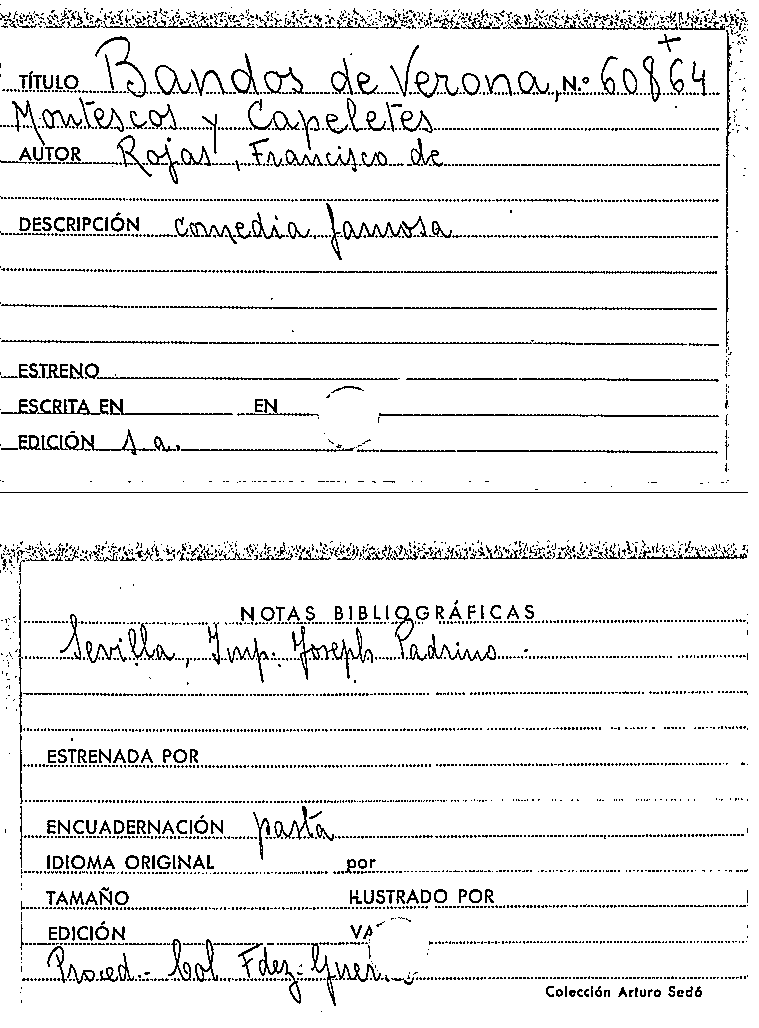 TÍTULO Bandos de Verona, N.º 60864
Montescos y Capeletes
AUTOR Rojas, Francisco de
DESCRIPCIÓN comedia famosa
ESTRENO
ESCRITA EN EN
EDICIÓN s.a.
NOTAS BIBLIOGRÁFICAS
Sevilla, Imp. Joseph Padrino.
ESTRENADA POR
ENCUADERNACIÓN pasta
IDIOMA ORIGINAL por
TAMAÑO ILUSTRADO POR
EDICIÓN
Proced.- Col. Fdez-
Colección Arturo Sedó